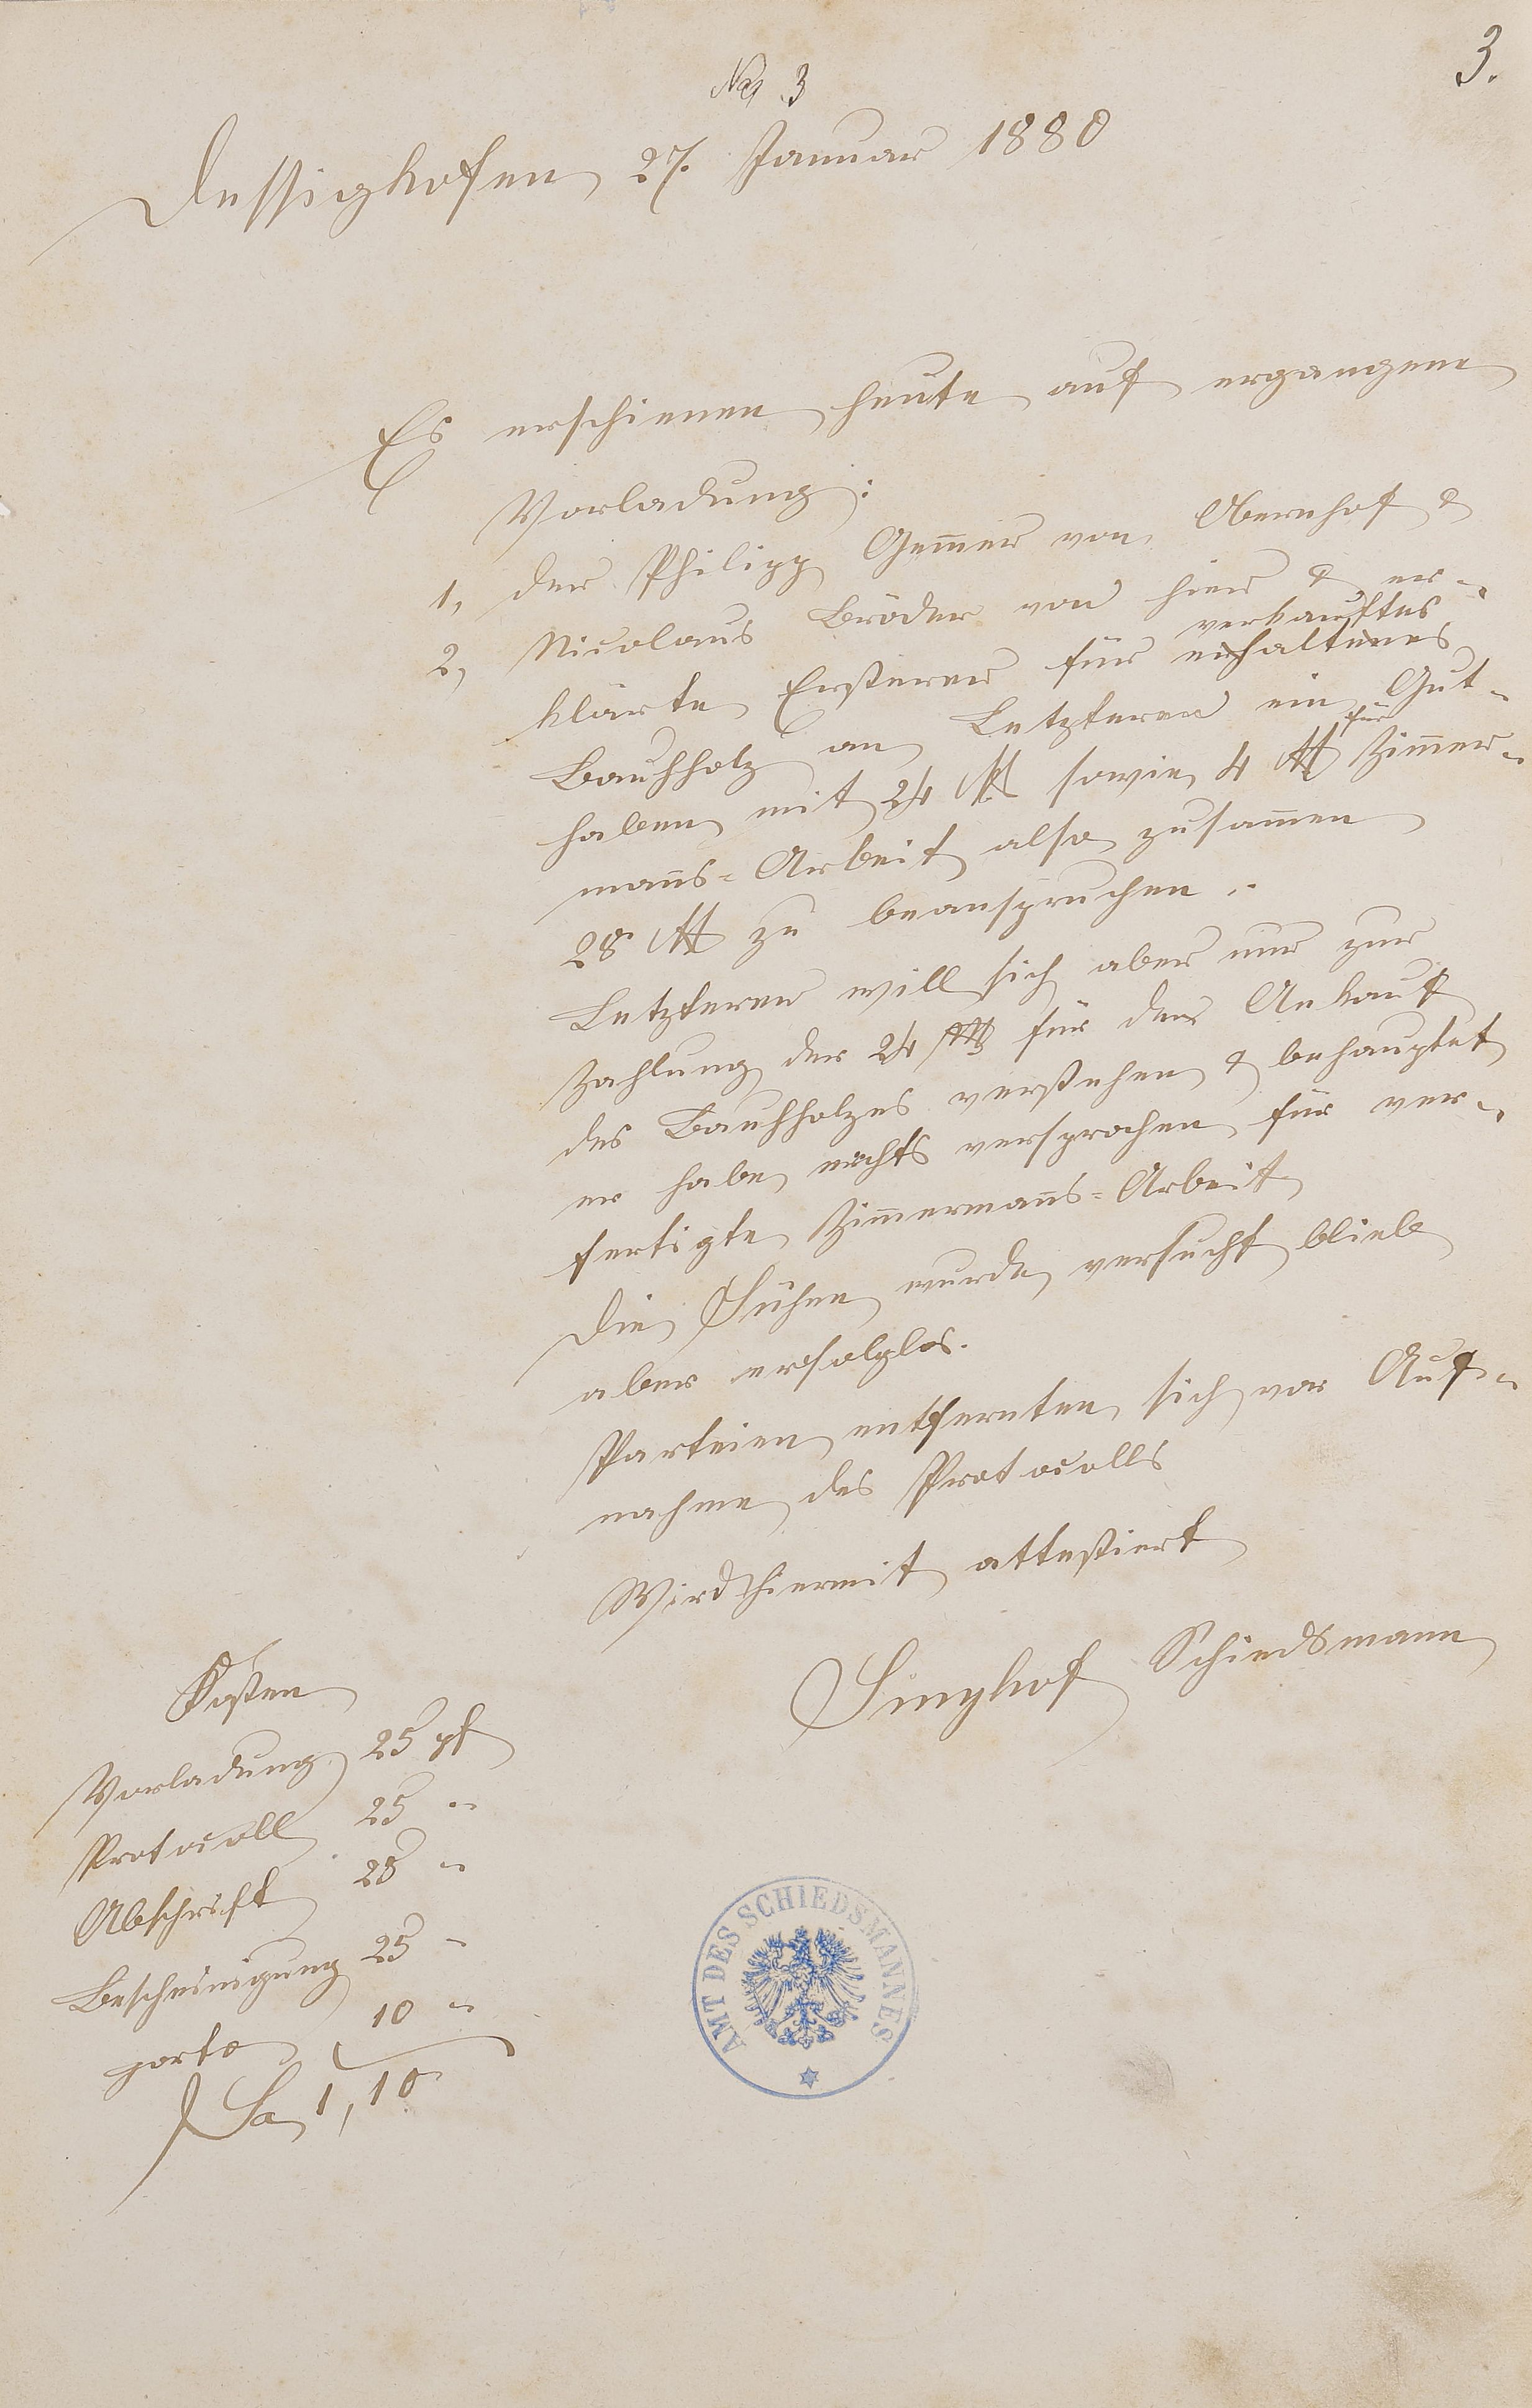 3.
No 3
Dessighofen, 27. Januar 1880
Es erschienen heute auf ergangene
Vorladung:
1, der Philipp Gem̄er von Obernhof &
2, Nicolaus Bröder von hier & er-
klärte Ersterer für erhaltenes verkauftes
Bauhholz an Letzterer ein Gut-
haben mit 24 M sowie 4 M für Zim̄er-
man̄s-Arbeit also zusam̄en
28 M zu beanspruchen.
Letzterer will sich aber nur zur
Zahlung der 24 M für den Ankauf
des Bauhholzes verstehen & behauptet
er habe nichts versprochen für ver-
fertigte Zim̄erman̄s-Arbeit
Die Sühne wurde versucht blieb
aber erfolglos.
Parteien entfernten sich vor Auf-
nahme des Protocolls
Wird hiermit attestiert
Singhof Schiedsmann
Kosten
Vorladung 25 pf
Protocoll 25 "
Abschrift 25 "
Bescheinigung 25 "
porto 10 "
Sa 1,10
AMT DES SCHIEDSMANNES